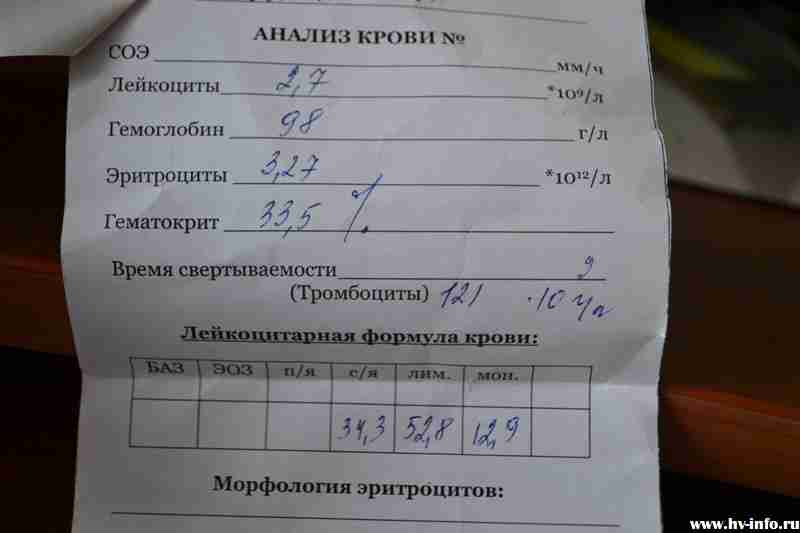 АНАЛИЗ КРОВИ №
СОЭ мм/ч
Лейкоциты 2,7 *10⁹/л
Гемоглобин 98 г/л
Эритроциты 3,27 *10¹²/л
Гематокрит 33,5 %
Время свертываемости
(Тромбоциты) 121 ·10 9/л
Лейкоцитарная формула крови:
БАЗ ЭОЗ п/я с/я лим. мон.
34,3 52,8 12,9
Морфология эритроцитов:
www.hv-info.ru